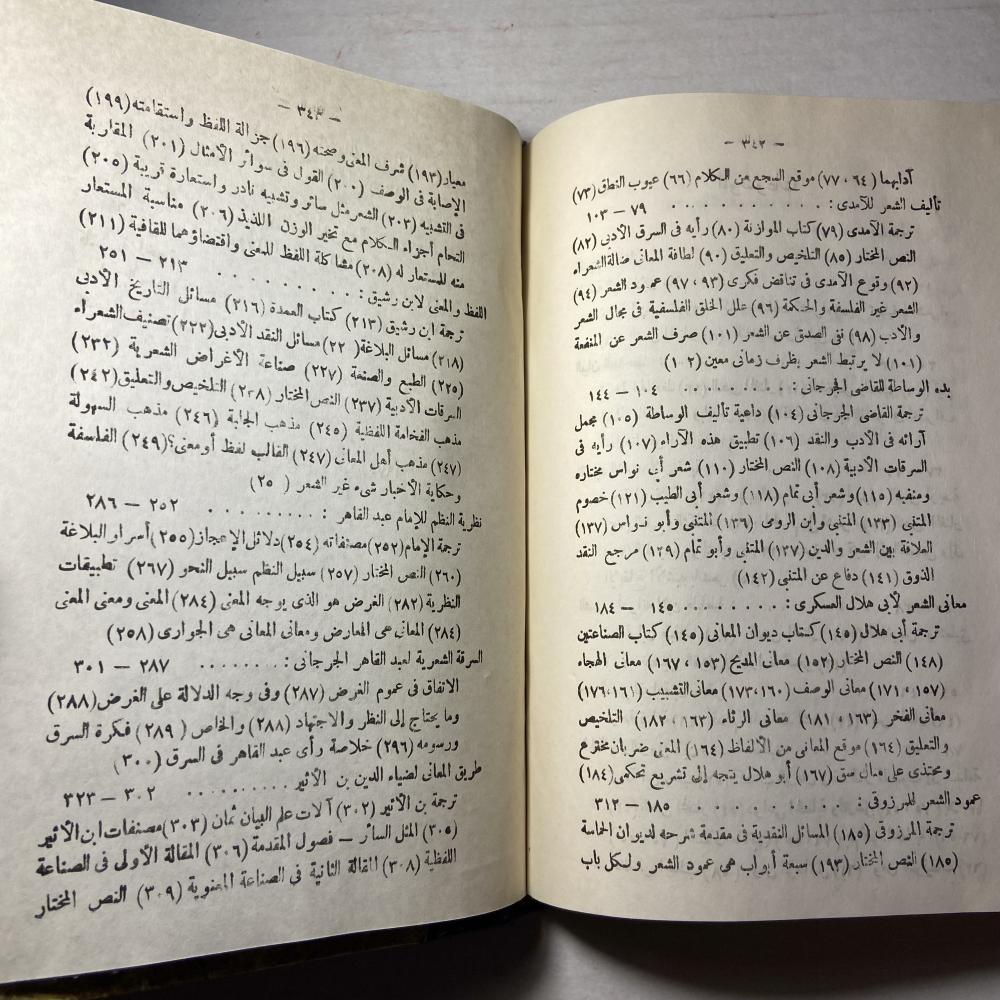 — ٣٤٢ —
آدابهما (٦٤، ٧٧) موقع السجع من الكلام (٦٦) عيوب النطق (٧٣)
تأليف الشعر للآمدى : . . . . . . . . . . ٧٩ — ١٠٣
ترجمة الآمدى (٧٩) كتاب الموازنة (٨٠) رأيه فى السرق الأدبى (٨٢)
النص المختار (٨٥) التلخيص والتعليق (٩٠) لطافة المعانى ضالة الشعراء
(٩٢) وقوع الآمدى فى تناقض فكرى (٩٣، ٩٧) عمود الشعر (٩٤)
الشعر غير الفلسفة والحكمة (٩٦) علل الخلق الفلسفية فى مجال الشعر
والأدب (٩٨) نفى الصدق عن الشعر (١٠١) صرف الشعر عن المنفعة
(١٠١) لا يرتبط الشعر بظرف زمانى معين (١٠٢)
بدء الوساطة للقاضى الجرجانى : . . . . . . . . . ١٠٤ — ١٤٤
ترجمة القاضى الجرجانى (١٠٤) داعية تأليف الوساطة (١٠٥) مجمل
آرائه فى الأدب والنقد (١٠٦) تطبيق هذه الآراء (١٠٧) رأيه فى
السرقات الأدبية (١٠٨) النص المختار (١١٠) شعر أبى نواس مختاره
ومنفيه (١١٥) وشعر أبى تمام (١١٨) وشعر أبى الطيب (١٢١) خصوم
المتنبى (١٣٣) المتنبى وابن الرومى (١٣٦) المتنبى وأبو نواس (١٣٧)
العلاقة بين الشعر والدين (١٣٧) المتنبى وأبو تمام (١٣٩) مرجع النقد
الذوق (١٤١) دفاع عن المتنبى (١٤٢)
معانى الشعر لأبى هلال العسكرى : . . . . . . . . ١٤٥ — ١٨٤
ترجمة أبى هلال (١٤٥) كتاب ديوان المعانى (١٤٥) كتاب الصناعتين
(١٤٨) النص المختار (١٥٢) معانى المديح (١٥٣، ١٦٧) معانى الهجاء
(١٥٧، ١٧١) معانى الوصف (١٦٠، ١٧٣) معانى التشبيب (١٦١، ١٧٦)
معانى الفخر (١٦٣، ١٨١) معانى الرثاء (١٦٣، ١٨٢) التلخيص
والتعليق (١٦٤) موقع المعانى من الألفاظ (١٦٤) المعنى ضربان مخترع
ومحتذى على مثال سبق (١٦٧) أبو هلال يتجه إلى تشريع تحكمى (١٨٤)
عمود الشعر للمرزوقى : . . . . . . . . . ١٨٥ — ٢١٢
ترجمة المرزوقى (١٨٥) المسائل النقدية فى مقدمة شرحه لديوان الحماسة
(١٨٥) النص المختار (١٩٣) سبعة أبواب هى عمود الشعر ولكل باب
— ٣٤٣ —
معيار (١٩٣) شرف المعنى وصحته (١٩٦) جزالة اللفظ واستقامته (١٩٩)
الإصابة فى الوصف (٢٠٠) القول فى سوائر الأمثال (٢٠١) المقاربة
فى التشبيه (٢٠٣) الشعر مثل سائر وتشبيه نادر واستعارة قريبة (٢٠٥)
التحام أجزاء الكلام مع تخير الوزن اللذيذ (٢٠٦) مناسبة المستعار
منه للمستعار له (٢٠٨) مشاكلة اللفظ للمعنى واقتضاؤهما للقافية (٢١١)
اللفظ والمعنى لابن رشيق : . . . . . . . . ٢١٣ — ٢٥١
ترجمة ابن رشيق (٢١٣) كتاب العمدة (٢١٦) مسائل التاريخ الأدبى
(٢١٨) مسائل البلاغة ( ٢٢) مسائل النقد الأدبى (٢٢٢) تصنيف الشعراء
(٢٢٥) الطبع والصنعة (٢٢٧) صناعة الأغراض الشعرية (٢٣٢)
السرقات الأدبية (٢٣٧) النص المختار (٢٣٨) التلخيص والتعليق (٢٤٢)
مذهب الفخامة اللفظية (٢٤٥) مذهب الجلبة (٢٤٦) مذهب السهولة
(٢٤٧) مذهب أهل المعانى (٢٤٧) القالب لفظ أو معنى؟ (٢٤٩) الفلسفة
وحكاية الأخبار شىء غير الشعر ( ٢٥)
نظرية النظم للإمام عبد القاهر : . . . . . . . . . ٢٥٢ — ٢٨٦
ترجمة الإمام (٢٥٢) مصنفاته (٢٥٤) دلائل الإعجاز (٢٥٥) أسرار البلاغة
(٢٦٠) النص المختار (٢٥٧) سبيل النظم سبيل النحو (٢٦٧) تطبيقات
النظرية (٢٨٢) الغرض هو الذى يوجه المعنى (٢٨٤) المعنى ومعنى المعنى
(٢٨٤) المعانى هى المعارض ومعانى المعانى هى الجوارى (٢٥٨)
السرقة الشعرية لعبد القاهر الجرجانى : . . . . . . . ٢٨٧ — ٣٠١
الاتفاق فى عموم الغرض (٢٨٧) وفى وجه الدلالة على الغرض (٢٨٨)
وما يحتاج إلى النظر والاجتهاد (٢٨٨) والخاص (٢٨٩) فكرة السرق
ورسومه (٢٩٦) خلاصة رأى عبد القاهر فى السرق (٣٠٠)
طريق المعانى لضياء الدين بن الأثير . . . . . . . . . . ٣٠٢ — ٣٢٣
ترجمة بن الأثير (٣٠٢) آلات علم البيان ثمان (٣٠٣) مصنفات ابن الأثير
(٣٠٥) المثل السائر — فصول المقدمة (٣٠٦) المقالة الأولى فى الصناعة
اللفظية (٣٠٨) المقالة الثانية فى الصناعة المعنوية (٣٠٩) النص المختار